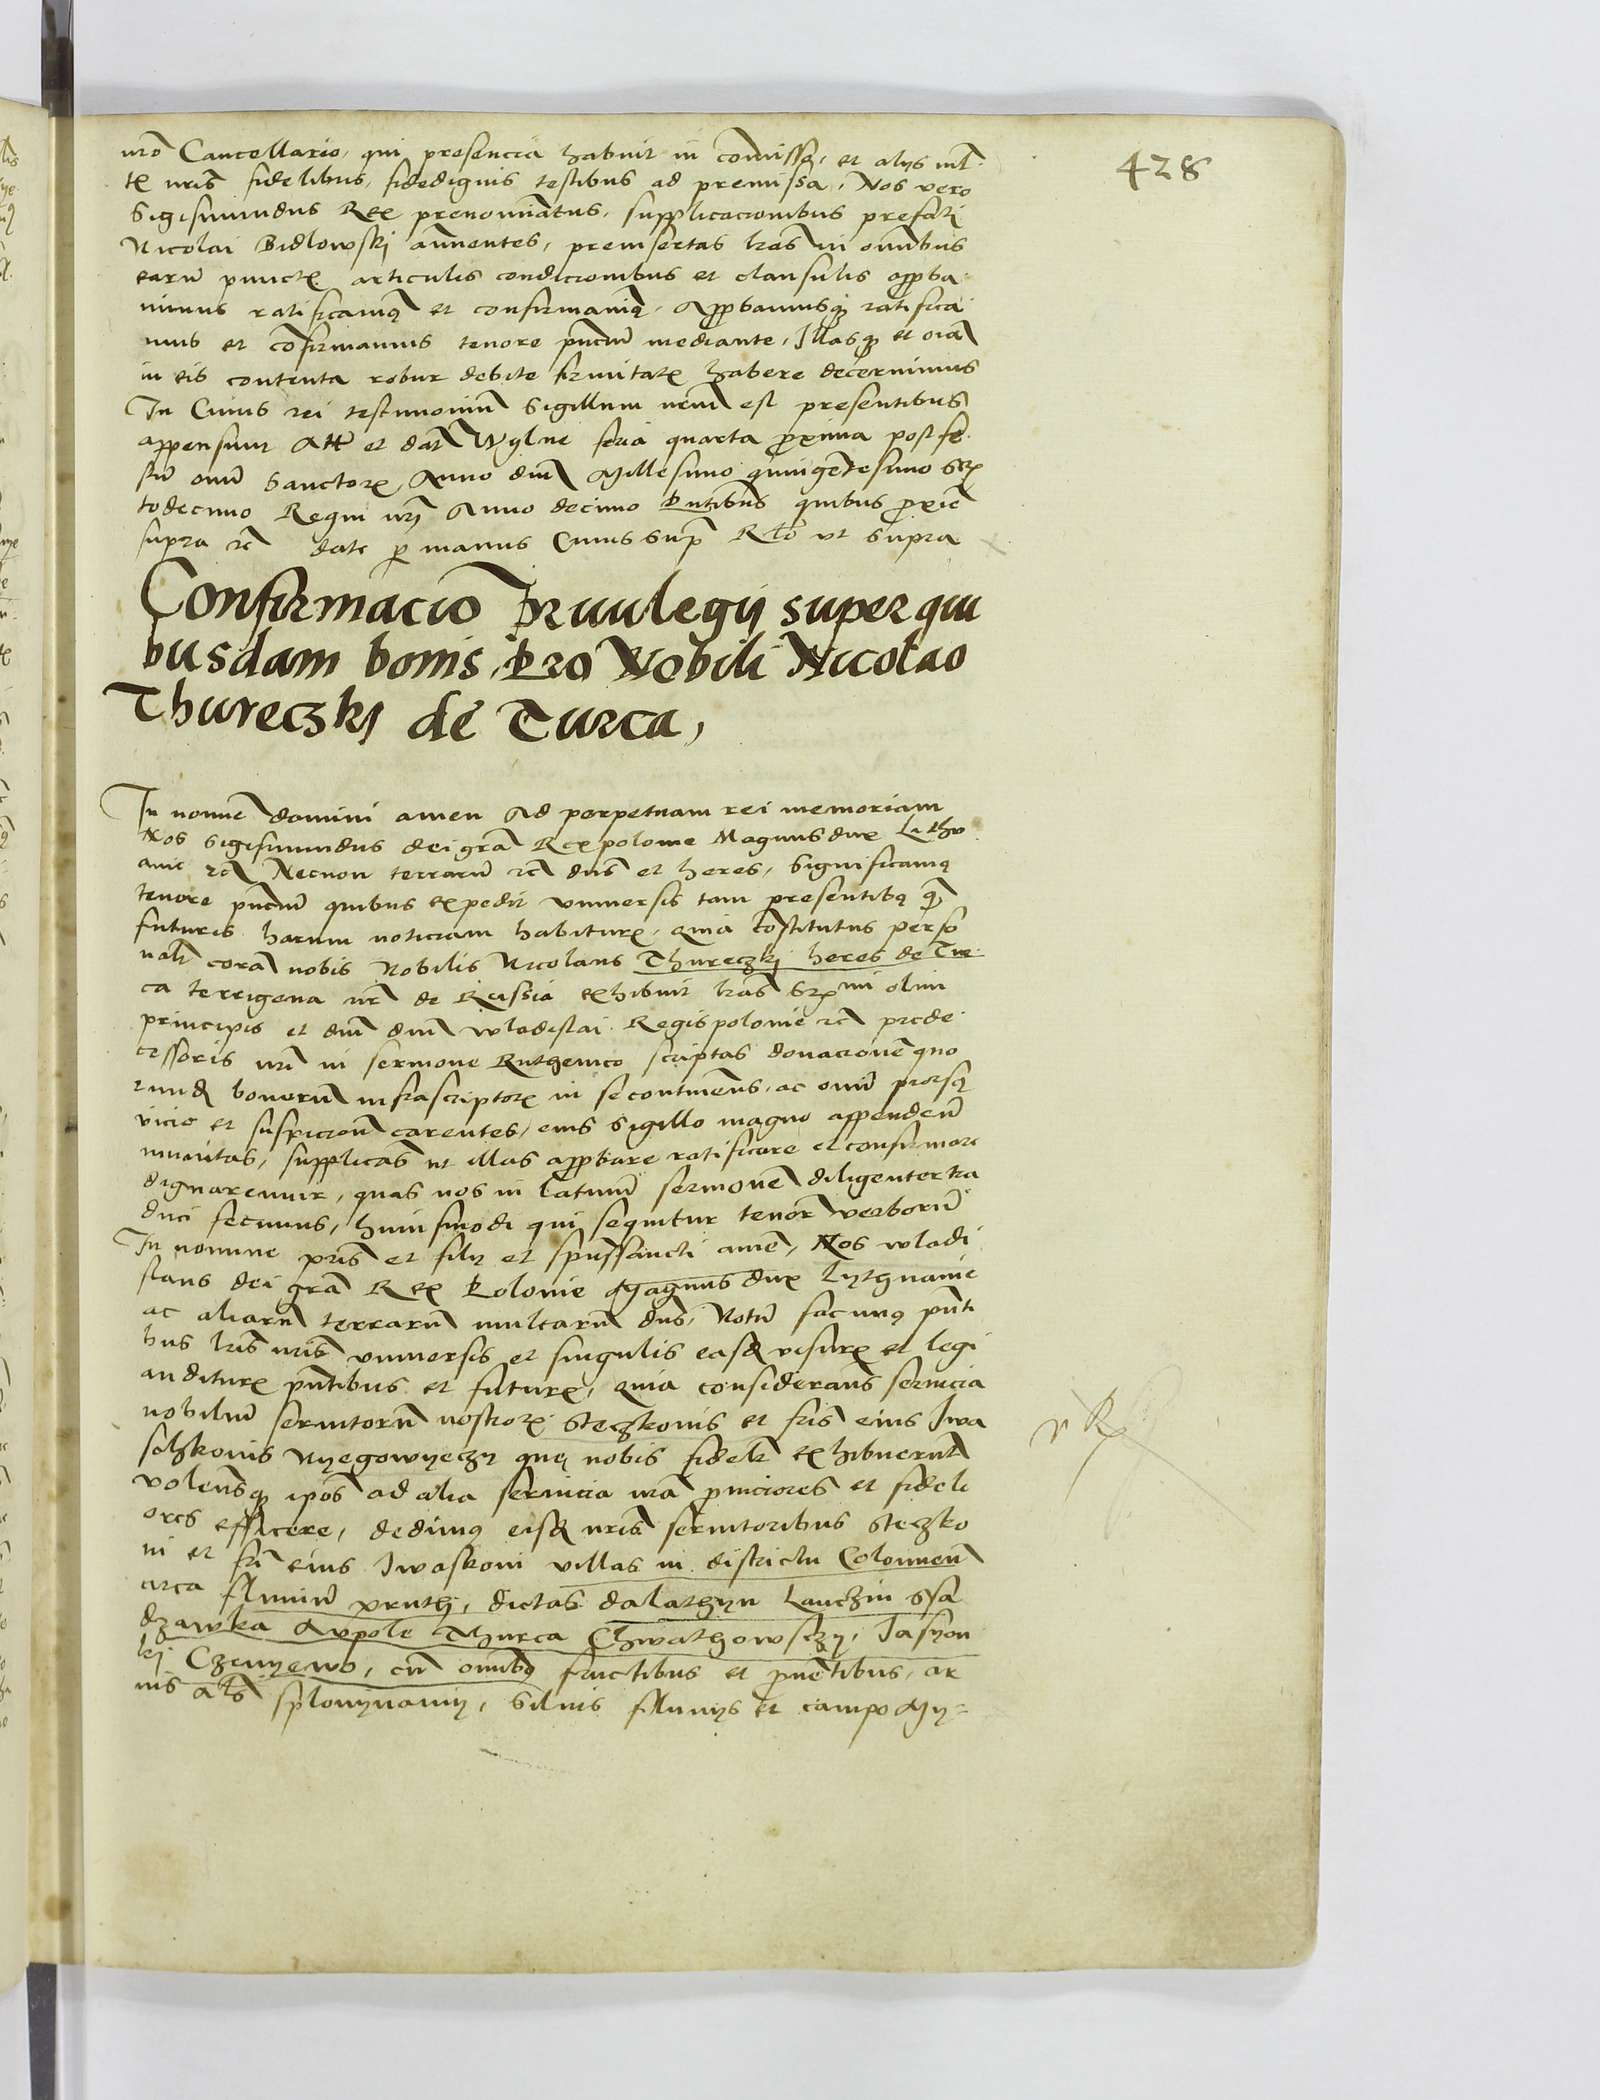 428
nro Cancellario, qui presencia habuit in comissis, et alijs mlt
tis nris fidelibus, fidedignis testibus ad premissa, Nos vero
Sigismundus Rex prenominatus, supplicacionibus prefati
Nicolai Bidlowskj annentes, preinsertas lras in omnibus
earum punctis articulis condicionibus et clausulis approba
uimus ratificauimus et confirmauimus, Approbamusque ratifica
mus et confirmamus tenore pntium mediante, Illasque et oia
in eis contenta robur debite firmitatis habere decernimus
In Cuius rei testimonium Sigillum nrum est presentibus
appensum Act et dat Wylne feria quarta proxima post fe
stum omnium Sanctorum, Anno dni Millesimo quingentesimo Sex
todecimo Regni nri Anno decimo Pntibus quibus proxie
supra etc date per manus Cuius supra Rlo ut supra
Confirmacio Priuilegij super qui
busdam bonis, Pro Nobili Nicolao
Thureczkj de Turca,
In nomine domini amen Ad perpetuam rei memoriam
Nos Sigismundus dei gra Rex polonie Magnus dux Lithu
anie etc Necnon terrarum etc dns et heres, Significamus
tenore pntium quibus expedit vniuersis tam presentibus quam
futuris harum noticiam habituris, quia constitutus perso
nalr coram nobis Nobilis Nicolaus Thureczkj heres de Tur
ca terrigena nr de Russia exhibuit lras Srmi olim
principis et dni dni wladislai Regis polonie etc prede
cessoris nri in sermone Ruthenico scriptas donacionem quo
rundam bonorum infrascriptorum in se continens, ac omni prorsus
vicio et suspicione carentes, eius Sigillo magno appenden
munitas, supplicans ut illas approbare ratificare et confirmare
dignaremur, quas nos in latinum sermonem diligenter tra
duci fecimus, huiusmodi qui sequitur tenor verborum
In nomine pris et filij et spussancti amen, Nos wladi
slaus dei gra Rex Polonie Magnus dux Lythuanie
ac aliarum terrarum multarum dns, Notum facimus pnti
bus lris nris vniuersis et singulis easdem visuris et legi
audituris pntibus et futuris, quia considerans seruicia
nobilium seruitorum nostrorum Steczkonis et fris eius Iwa
schkonis Nyegowyeczy que nobis fidelr exhibuerunt
volensque ipos ad alia seruicia nra prniciores et fideli
ores efficere, dedimus eisdem nris seruitoribus Steczko
ni et fri eius Iwaskoni villas in districtu Colomien
circa fluuium pruthj, dictas dalathyn Lanczin Ssa
dzawka Avpole Thurca Chwathowsczy, Iasyon
kj Czenyewo, cum omnibus fructibus et prouentibus, ar
uis als splonynamy, Siluis fluuijs et campo My=